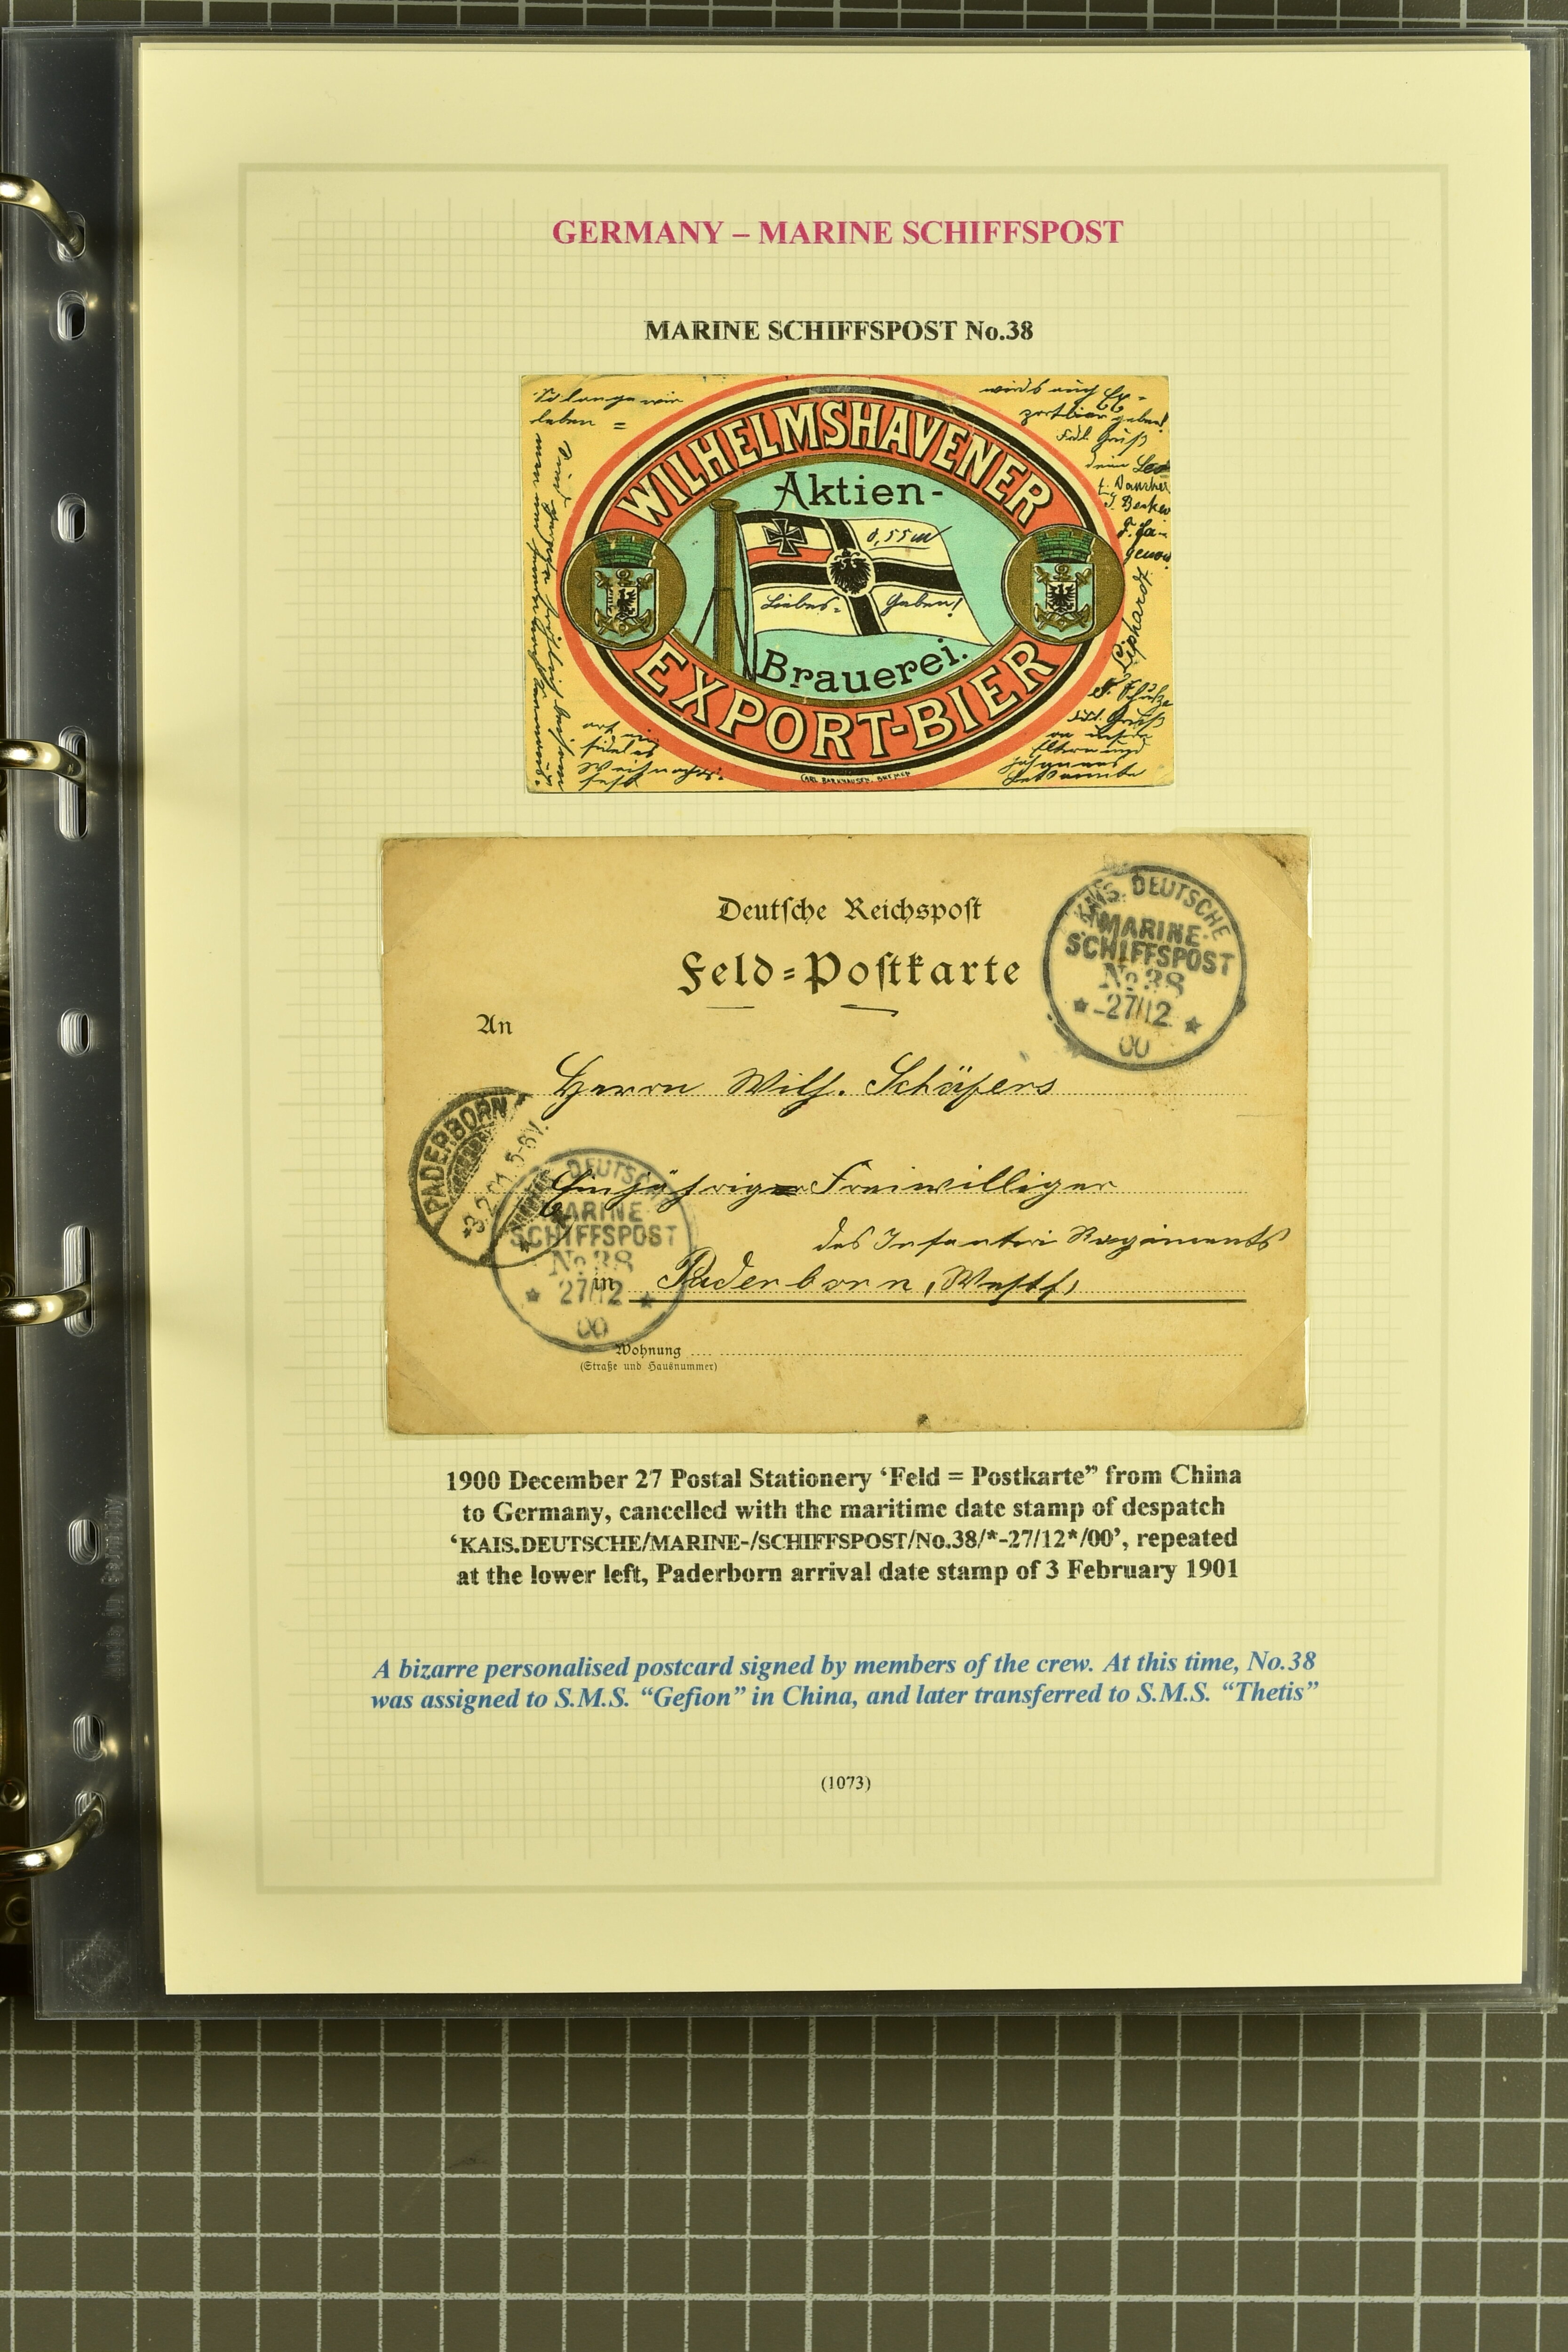 GERMANY – MARINE SCHIFFSPOST
MARINE SCHIFFSPOST No.38
So lange wir
leben =
wird's auch Ex-
portbier geben!
Fdl. Gruß
dein Leo
WILHELMSHAVENER
Aktien-
0,55 M
Liebes- Gaben!
Brauerei.
EXPORT-BIER
CARL BARKHAUSEN, BREMEN
Liphardt
F. Schulze
fideles
Weihnachts-
fest
Fdl. Gruß
an
Eltern und
Bekannte
Deutsche Reichspost
Feld=Postkarte
KAIS. DEUTSCHE
MARINE-
SCHIFFSPOST
No 38
* -27/12 *
00
An
Herrn Wilh. Schäfers
PADERBORN
*3.2.01.5-6V.
Einjähriger Freiwilliger
DEUTSCHE
MARINE
SCHIFFSPOST
No 38
* 27/12 *
00
des Infanterie Regiments
in Paderborn, Westf.
Wohnung
(Straße und Hausnummer)
1900 December 27 Postal Stationery ‘Feld = Postkarte” from China
to Germany, cancelled with the maritime date stamp of despatch
‘KAIS.DEUTSCHE/MARINE-/SCHIFFSPOST/No.38/*-27/12*/00’, repeated
at the lower left, Paderborn arrival date stamp of 3 February 1901
A bizarre personalised postcard signed by members of the crew. At this time, No.38
was assigned to S.M.S. “Gefion” in China, and later transferred to S.M.S. “Thetis”
(1073)